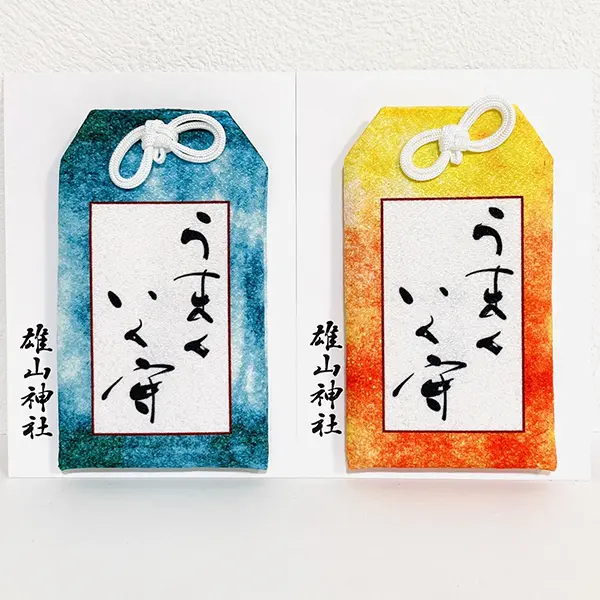 うまく
いく守
雄山神社
うまく
いく守
雄山神社